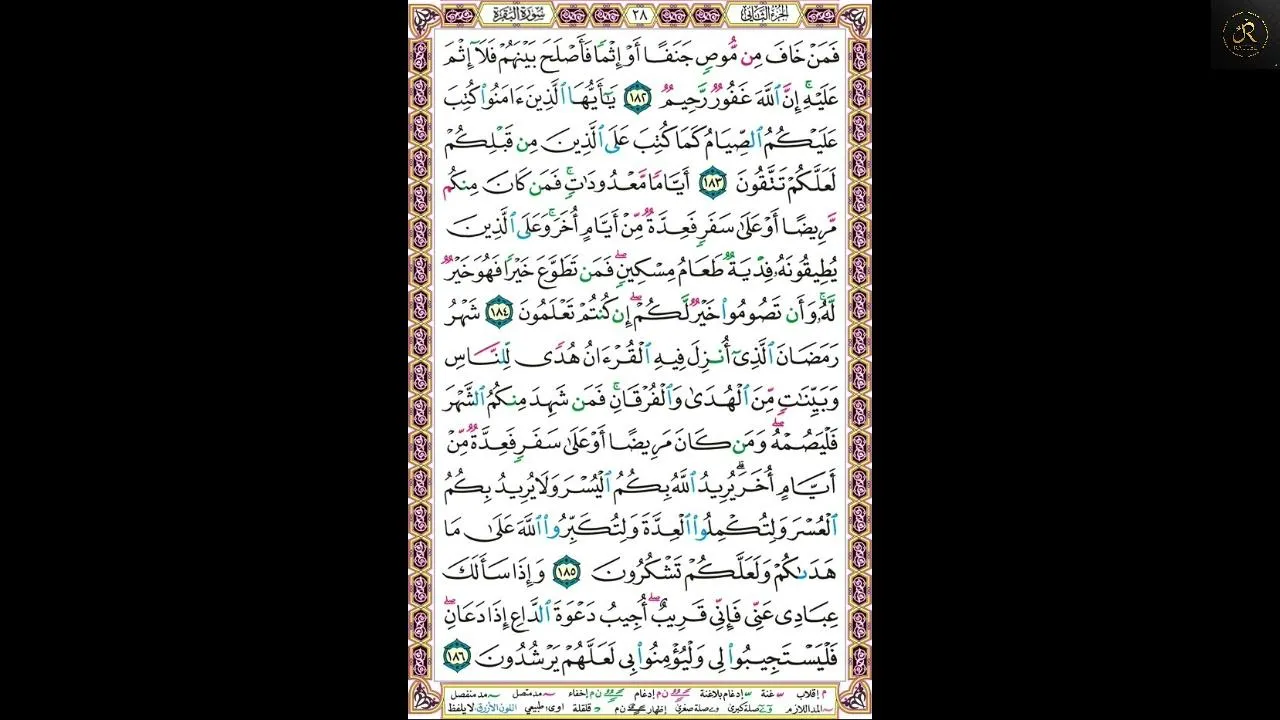 الجزء الثاني ٢٨ سورة البقرة
فَمَنْ خَافَ مِن مُّوصٍ جَنَفًا أَوْ إِثْمًا فَأَصْلَحَ بَيْنَهُمْ فَلَآ إِثْمَ
عَلَيْهِ ۚ إِنَّ ٱللَّهَ غَفُورٌ رَّحِيمٌ ١٨٢ يَـٰٓأَيُّهَا ٱلَّذِينَ ءَامَنُوا۟ كُتِبَ
عَلَيْكُمُ ٱلصِّيَامُ كَمَا كُتِبَ عَلَى ٱلَّذِينَ مِن قَبْلِكُمْ
لَعَلَّكُمْ تَتَّقُونَ ١٨٣ أَيَّامًا مَّعْدُودَٰتٍ ۚ فَمَن كَانَ مِنكُم
مَّرِيضًا أَوْ عَلَىٰ سَفَرٍ فَعِدَّةٌ مِّنْ أَيَّامٍ أُخَرَ ۚ وَعَلَى ٱلَّذِينَ
يُطِيقُونَهُۥ فِدْيَةٌ طَعَامُ مِسْكِينٍ ۖ فَمَن تَطَوَّعَ خَيْرًا فَهُوَ خَيْرٌ
لَّهُۥ ۚ وَأَن تَصُومُوا۟ خَيْرٌ لَّكُمْ ۖ إِن كُنتُمْ تَعْلَمُونَ ١٨٤ شَهْرُ
رَمَضَانَ ٱلَّذِىٓ أُنزِلَ فِيهِ ٱلْقُرْءَانُ هُدًى لِّلنَّاسِ
وَبَيِّنَـٰتٍ مِّنَ ٱلْهُدَىٰ وَٱلْفُرْقَانِ ۚ فَمَن شَهِدَ مِنكُمُ ٱلشَّهْرَ
فَلْيَصُمْهُ ۖ وَمَن كَانَ مَرِيضًا أَوْ عَلَىٰ سَفَرٍ فَعِدَّةٌ مِّنْ
أَيَّامٍ أُخَرَ ۗ يُرِيدُ ٱللَّهُ بِكُمُ ٱلْيُسْرَ وَلَا يُرِيدُ بِكُمُ
ٱلْعُسْرَ وَلِتُكْمِلُوا۟ ٱلْعِدَّةَ وَلِتُكَبِّرُوا۟ ٱللَّهَ عَلَىٰ مَا
هَدَىٰكُمْ وَلَعَلَّكُمْ تَشْكُرُونَ ١٨٥ وَإِذَا سَأَلَكَ
عِبَادِى عَنِّى فَإِنِّى قَرِيبٌ ۖ أُجِيبُ دَعْوَةَ ٱلدَّاعِ إِذَا دَعَانِ ۖ
فَلْيَسْتَجِيبُوا۟ لِى وَلْيُؤْمِنُوا۟ بِى لَعَلَّهُمْ يَرْشُدُونَ ١٨٦
م إقلاب غنة إدغام بلاغنة ن م إدغام ن م إخفاء مد متصل مد منفصل
المد اللازم صلة كبرى صلة صغرى إظهار ن م قلقلة اوى، طبيعي اللون الأزرق لا يلفظ